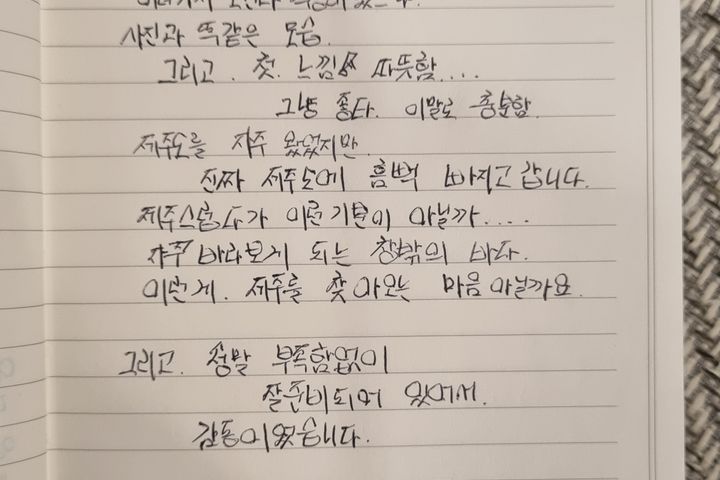 사진과 똑같은 모습.
그리고. 첫. 느낌은 따뜻함....
그냥 좋다. 이말로 충분함.
제주도를 자주 왔었지만.
진짜 제주도에 흠뻑 빠지고 갑니다.
제주스럽다가 이런기분이 아닐까....
자꾸 바라보게 되는 창밖의 바다.
이런게. 제주를 찾아오는 마음아닐까요.
그리고. 정말 부족함없이
잘준비되어 있어서.
감동이였습니다.